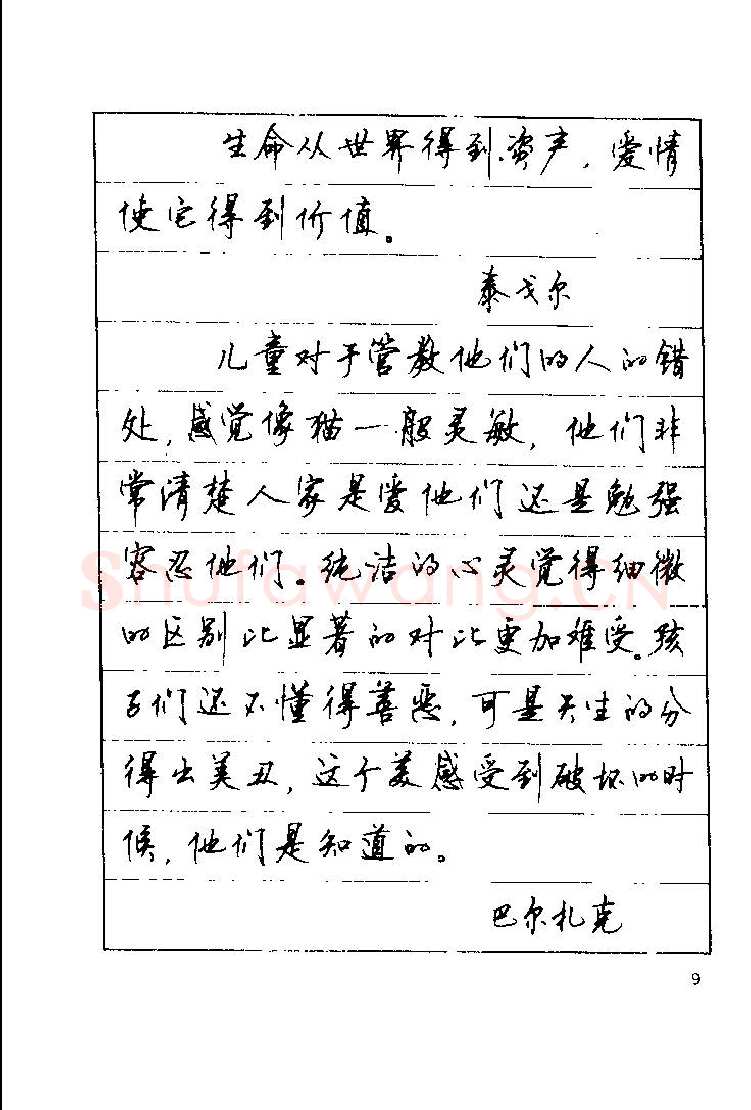 生命从世界得到资声，爱情
使它得到价值。
泰戈尔
儿童对于管教他们的人的错
处，感觉像猫一般灵敏，他们非
常清楚人家是爱他们还是勉强
容忍他们。纯洁的心灵觉得细微
的区别比显著的对比更加难受。孩
子们还不懂得善恶，可是天生的分
得出美丑，这个美感受到破坏的时
候，他们是知道的。
巴尔扎克
9
Shufawang.CN